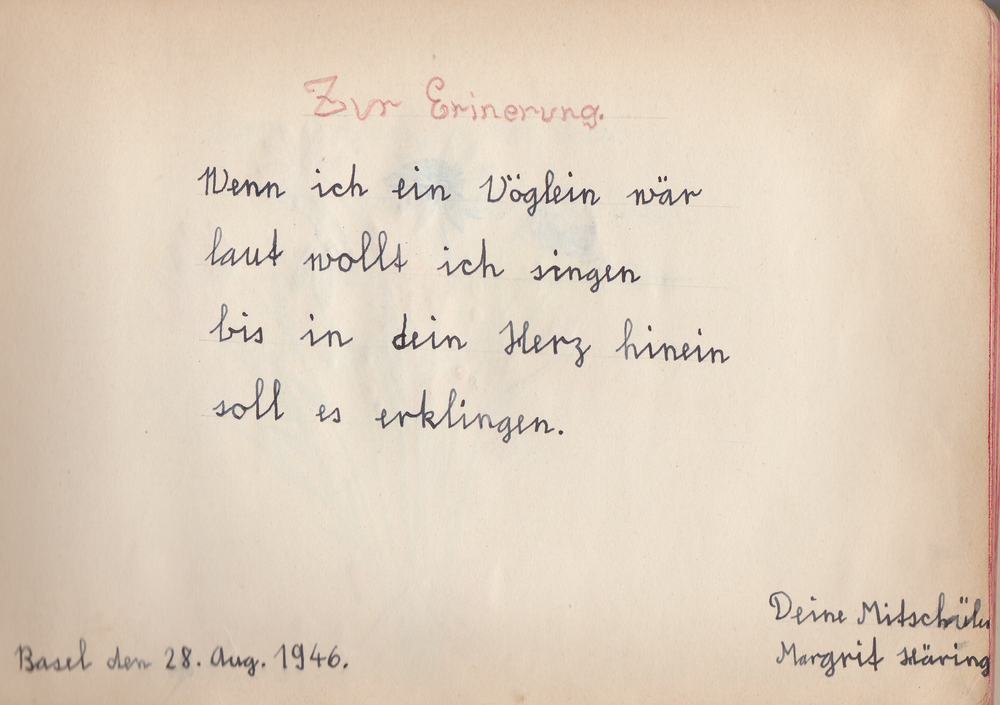 Zur Erinerung.
Wenn ich ein Vöglein wär
laut wollt ich singen
bis in dein Herz hinein
soll es erklingen.
Deine
Margrit Häring
Basel den 28. Aug. 1946.